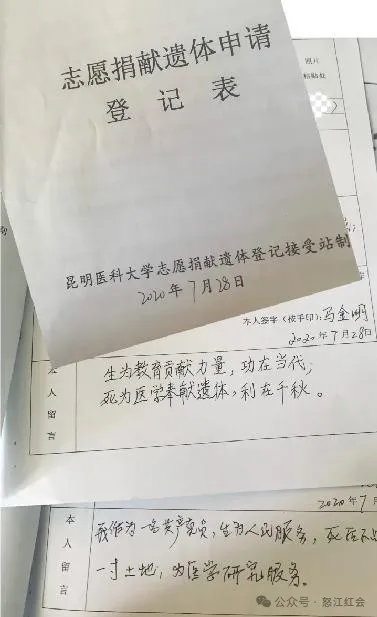 志愿捐献遗体申请
登记表
昆明医科大学志愿捐献遗体登记接受站制
2020年7月28日
照片
粘贴处
本人签字(按手印):马金明
2020年7月28日
本人留言
生为教育贡献力量,功在当代;
死为医学奉献遗体,利在千秋。
2020年7
本人留言
我作为一名共产党员,生为人民服务,死后不占
一寸土地,为医学研究服务。
公众号·怒江红会